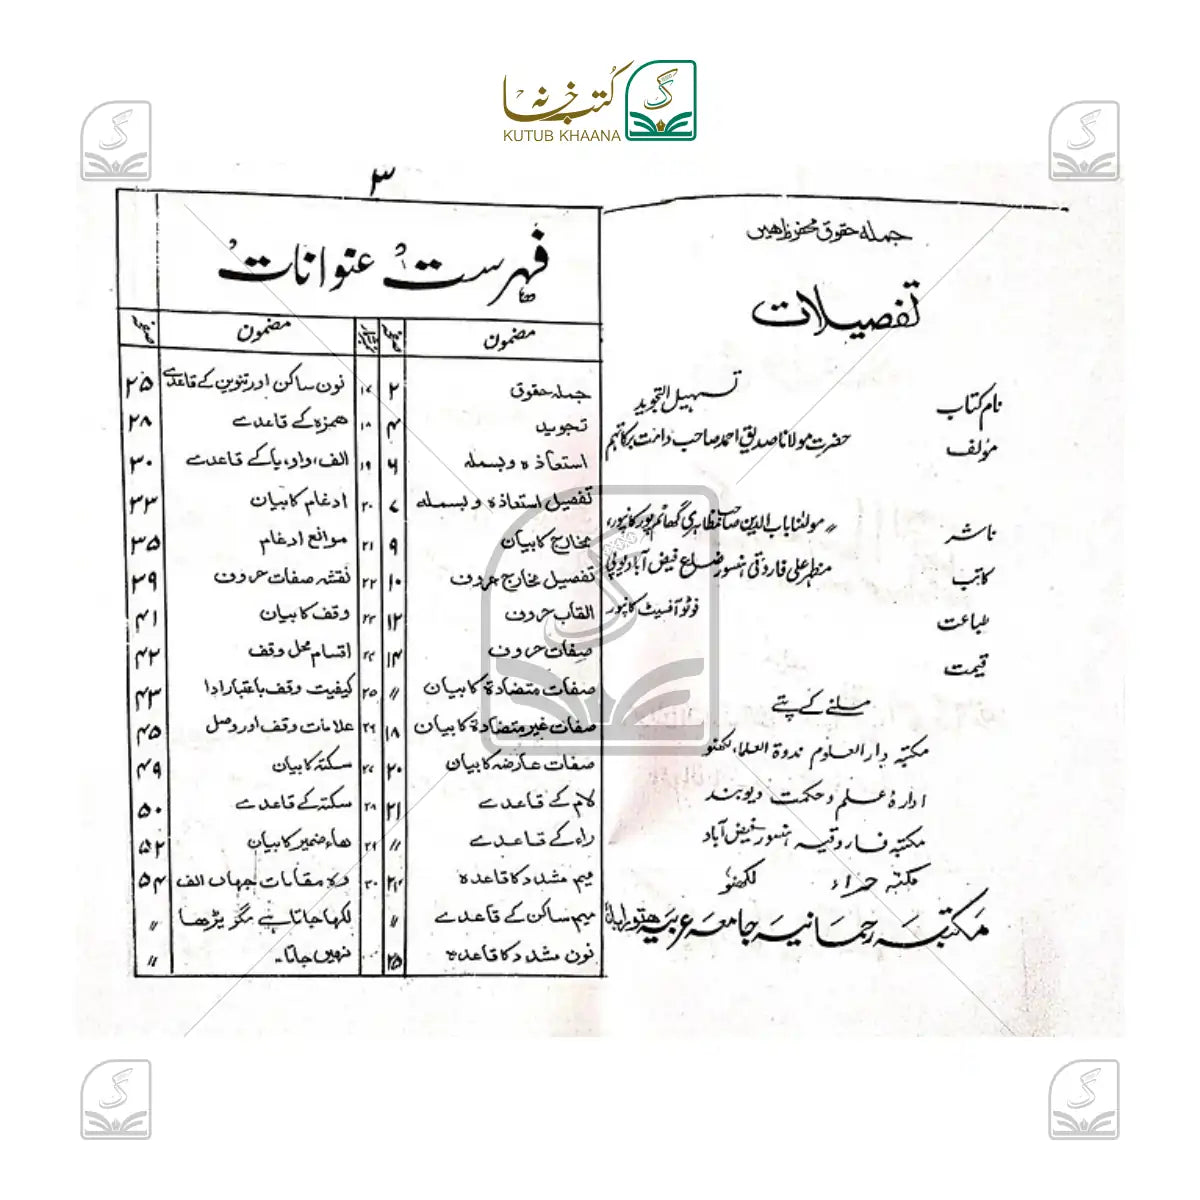 کتب خانہ
KUTUB KHAANA
جملہ حقوق محفوظ ھیں
تفصیلات
نام کتاب تسہیل التجوید
مؤلف حضرت مولانا صدیق احمد صاحب دامت برکاتہم
ناشر 〃 مولانا باب الدین صاحب مظاہری گھاتم پور کانپور،
کاتب مظہر علی فاروقی ہنسور ضلع فیض آباد یوپی
طباعت فوٹو آفسیٹ کانپور
قیمت
ملنے کے پتے
مکتبہ دارالعلوم ندوۃ العلماء لکھنؤ
ادارۂ علم و حکمت دیوبند
مکتبہ فاروقیہ ہنسور فیض آباد
مکتبہ حراء لکھنؤ
مکتبہ رحمانیہ جامعہ عربیہ ھتورا باندا
۳
فہرست عنوانات
مضمون صفحہ
جملہ حقوق ۲
تجوید ۴
استعاذہ و بسملہ ۶
تفصیل استعاذہ و بسملہ ۷
مخارج کا بیان ۹
تفصیل مخارج حروف ۱۰
القاب حروف ۱۲
صفات حروف ۱۴
صفات متضادۃ کا بیان 〃
صفات غیر متضادۃ کا بیان ۱۸
صفات عارضہ کا بیان ۲۰
لام کے قاعدے ۲۱
راء کے قاعدے 〃
میم مشدد کا قاعدہ ۲۴
میم ساکن کے قاعدے 〃
نون مشدد کا قاعدہ ۲۵
نمبر شمار مضمون صفحہ
۱۷ نون ساکن اور تنوین کے قاعدے ۲۵
۱۸ ھمزہ کے قاعدے ۲۸
۱۹ الف، واو، یا کے قاعدے ۳۰
۲۰ ادغام کا بیان ۳۳
۲۱ موانع ادغام ۳۵
۲۲ نقشہ صفات حروف ۳۹
۲۳ وقف کا بیان ۴۱
۲۴ اقسام محل وقف ۴۲
۲۵ کیفیت وقف باعتبار ادا ۴۳
۲۶ علامات وقف اور وصل ۴۵
۲۷ سکتہ کا بیان ۴۹
۲۸ سکتہ کے قاعدے ۵۰
۲۹ ھاء ضمیر کا بیان ۵۲
۳۰ وہ مقامات جہاں الف ۵۴
لکھا جاتا ہے مگر پڑھا 〃
نہیں جاتا۔ 〃